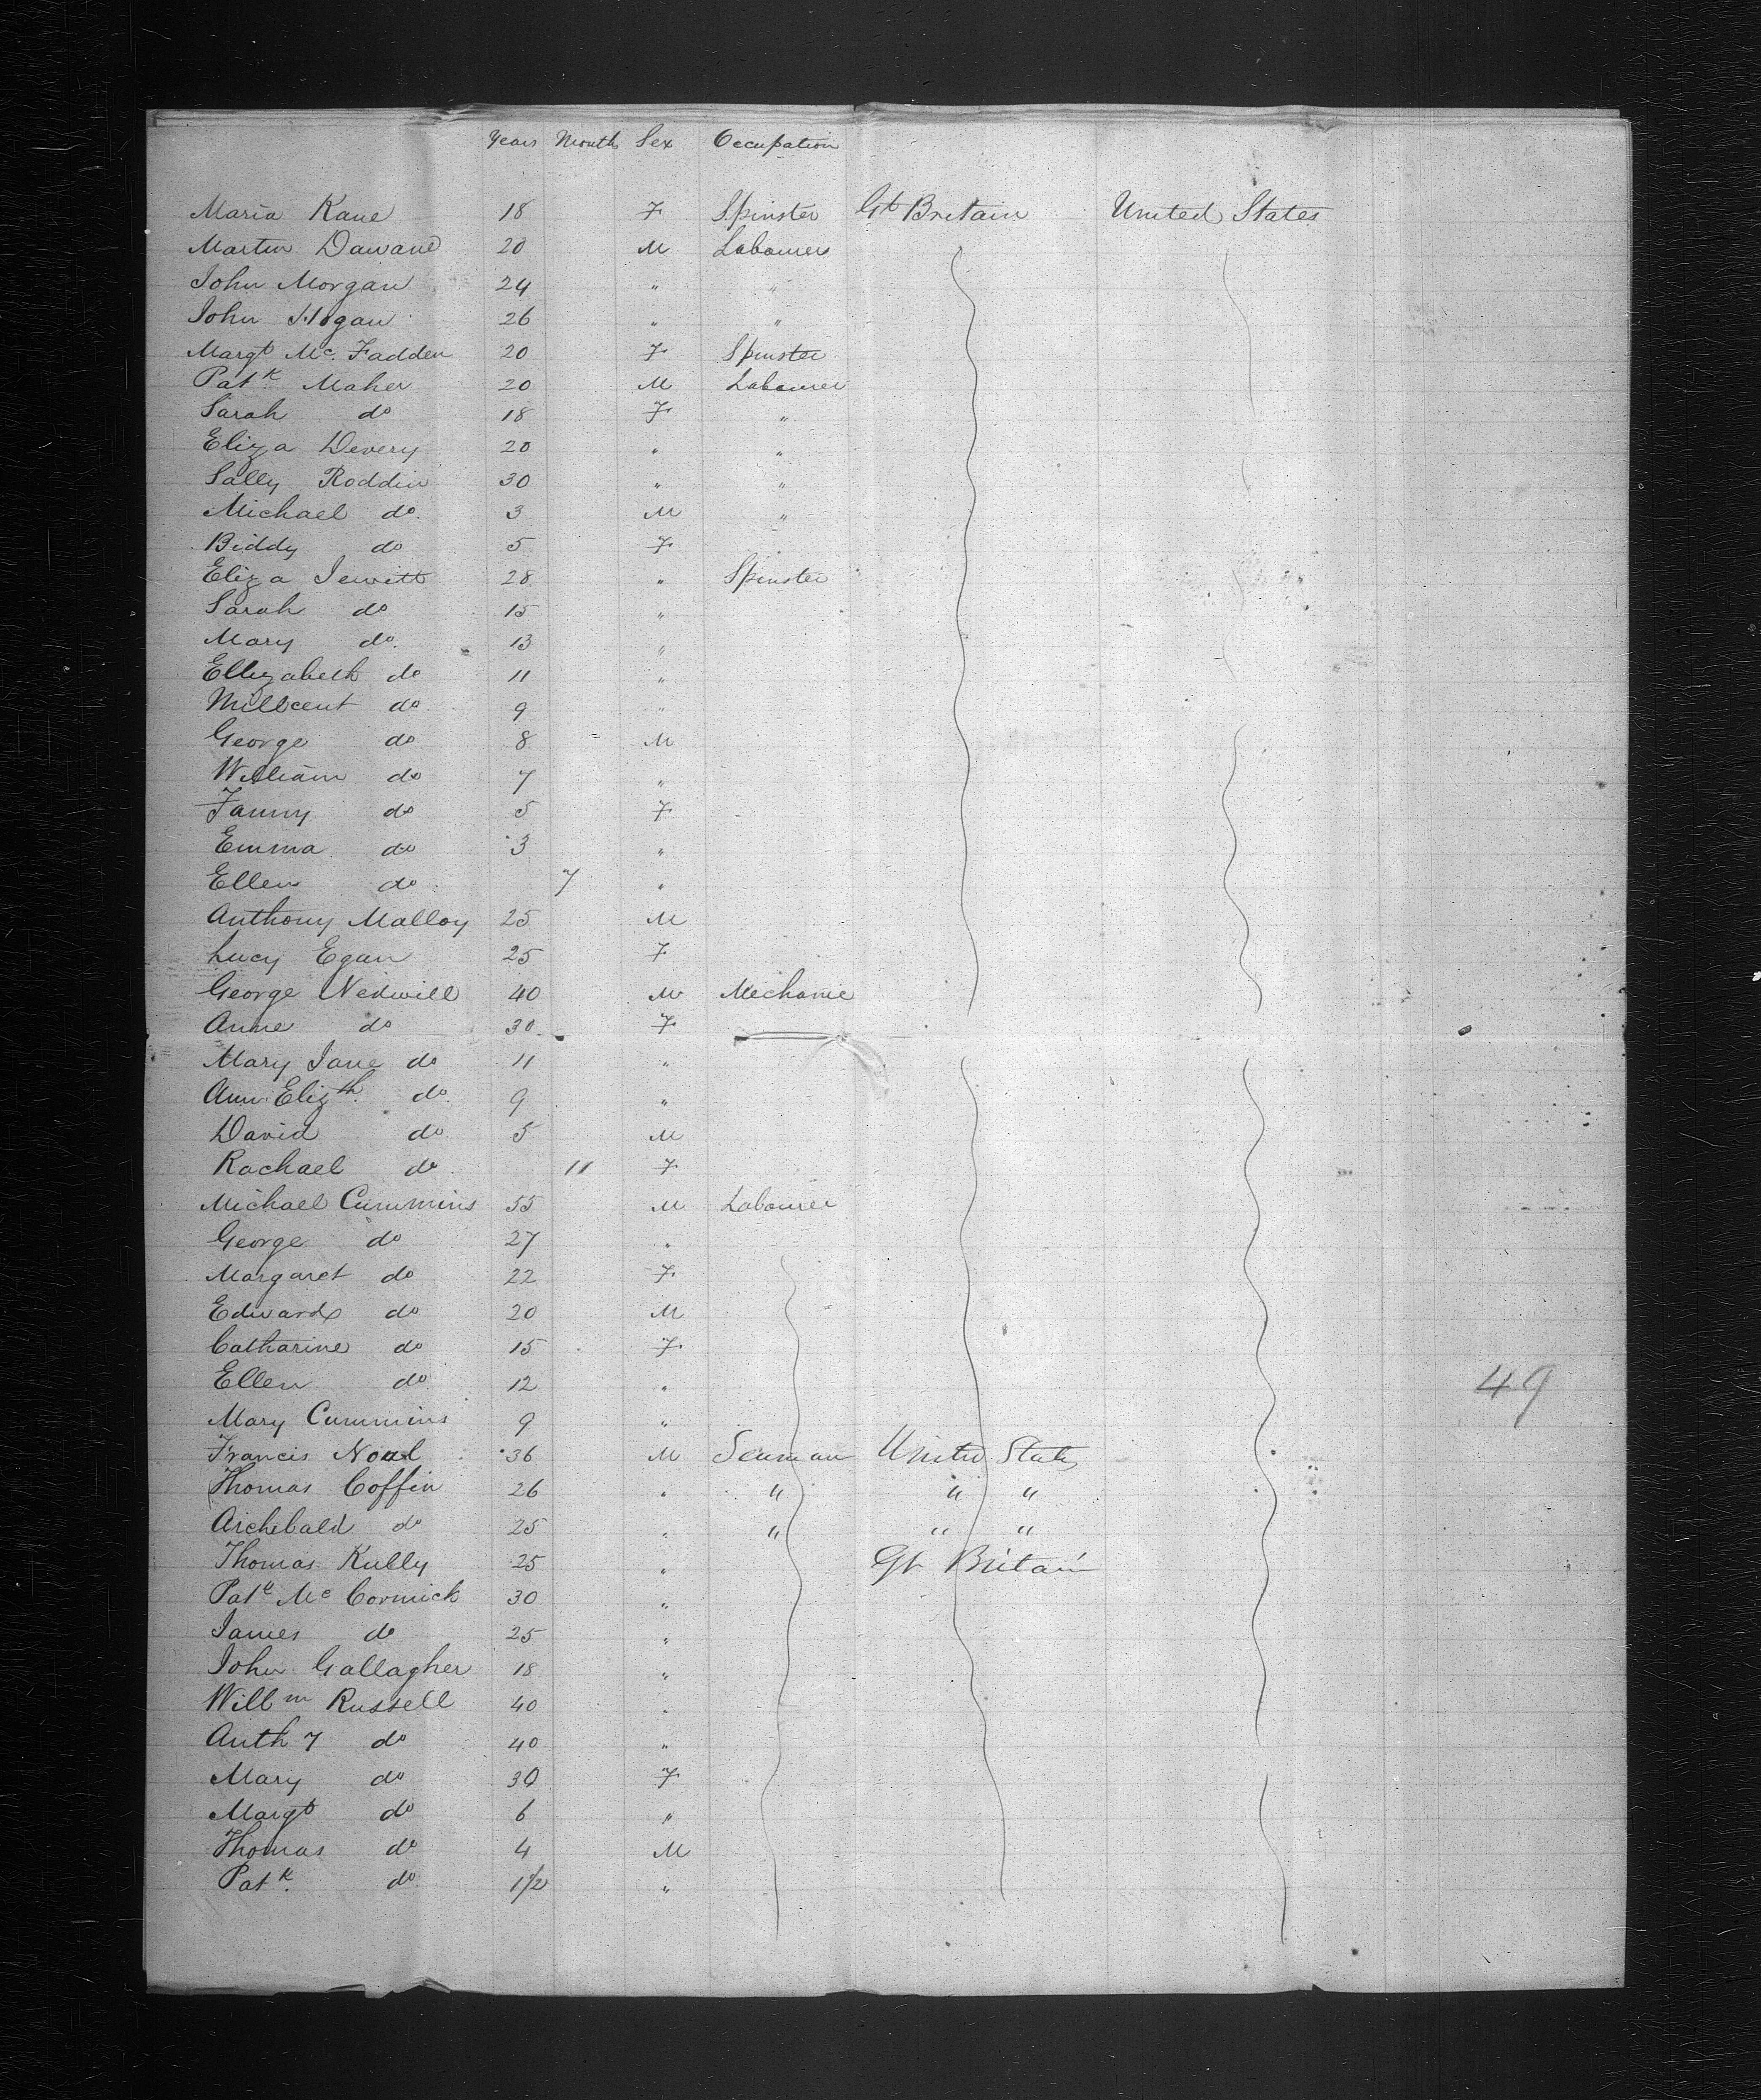 Years Month Sex Occupation
Maria Kane 18 F Spinster Gt Britain United States
Martin Dawane 20 M Labourer
John Morgan 24 " "
John Hogan 26 " "
Margt Mc. Fadden 20 F Spinster
Patk Maher 20 M Labourer
Sarah do 18 F "
Eliza Devery 20 " "
Sally Roddin 30 " "
Michael do. 3 M "
Biddy do 5 F
Eliza Jewitt 28 " Spinster
Sarah do 15 "
Mary do. 13 "
Ellizabeth do 11 "
Millcent do 9 "
George do 8 M
William do 7 "
Fanny do 5 F
Emma do 3 "
Ellen do 7 "
Anthony Malloy 25 M
Lucy Egan 25 F
George Nedwill 40 M Mechanic
Anne do 30 F
Mary Jane do 11 "
Ann Elizth. do. 9 "
David do 5 M
Rachael do 11 F
Michael Cummins 55 M Labourer
George do 27 "
Margaret do 22 F
Edward do 20 M
Catharine do 15 F
Ellen do 12 "
49
Mary Cummins 9 "
Francis Noal 36 M Seaman United States
Thomas Coffin 26 " " " "
Archibald do 25 " " " "
Thomas Kully 25 " Gt Britain
Patk Mc Cormick 30 "
James do 25 "
John Gallagher 18 "
Willm Russell 40 "
Anthy do 40 "
Mary do 30 F
Margt do 6 "
Thomas do 4 M
Patk. do 1 1/2 "